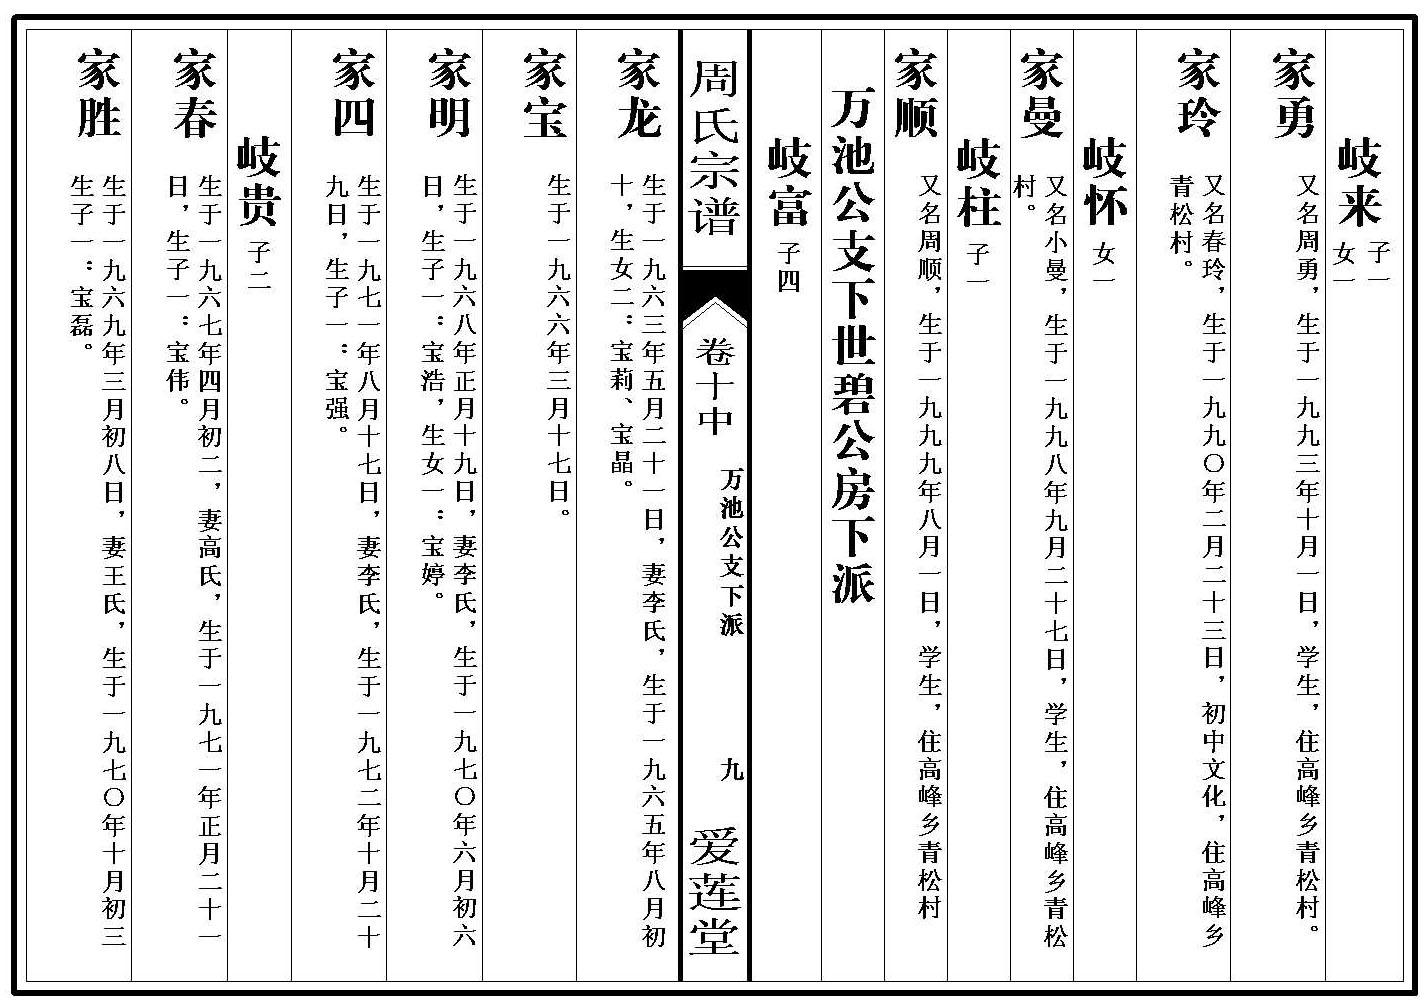 岐来 子一
女一
家勇 又名周勇，生于一九九三年十月一日，学生，住高峰乡青松村。
家玲 又名春玲，生于一九九〇年二月二十三日，初中文化，住高峰乡
青松村。
岐怀 女一
家曼 又名小曼，生于一九九八年九月二十七日，学生，住高峰乡青松
村。
岐柱 子一
家顺 又名周顺，生于一九九九年八月一日，学生，住高峰乡青松村
万池公支下世碧公房下派
岐富 子四
周氏宗谱
卷十中
万池公支下派
九
爱莲堂
家龙 生于一九六三年五月二十一日，妻李氏，生于一九六五年八月初
十，生女二：宝莉、宝晶。
家宝 生于一九六六年三月十七日。
家明 生于一九六八年正月十九日，妻李氏，生于一九七〇年六月初六
日，生子一：宝浩，生女一：宝婷。
家四 生于一九七一年八月十七日，妻李氏，生于一九七二年十月二十
九日，生子一：宝强。
岐贵 子二
家春 生于一九六七年四月初二，妻高氏，生于一九七一年正月二十一
日，生子一：宝伟。
家胜 生于一九六九年三月初八日，妻王氏，生于一九七〇年十月初三
生子一：宝磊。